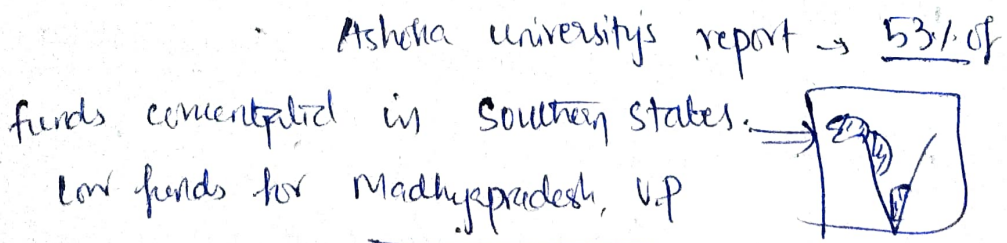 Ashoka university's report → 53% of
funds concentrated in Southern states. →
low funds for Madhyapradesh, U.P